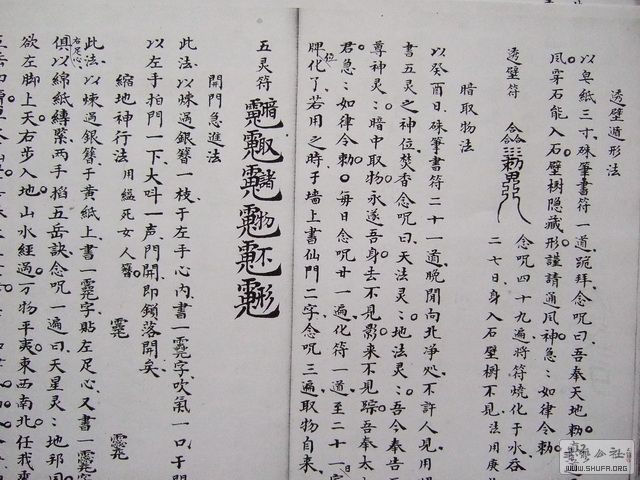 透壁遁形法
以皂紙三寸硃筆書符一道跪拜念咒曰吾奉天地勅
夙穿石能入石壁樹隐藏形謹請通夙神急:如律令勅
透壁符
念咒四十九遍将符燒化于水吞
二七日身入石壁樹不見法用庚
暗取物法
以癸酉日硃筆書符二十一道晚間向北净処不許人見用
書五灵之神位焚香念咒曰天法灵:地法灵:吾今奉吉
尊神灵:暗中取物永遂吾身去不見影来不見踪吾奉太
君急:如律令勅每日念咒廿一遍化符一道至二十一日
位
牌化了若用之時于墙上書仙門二字念咒三遍取物自来
五灵符
暗取諸物不形
開門急進法
此法以煉過銀簪一枝于左手心内書一字吹氣一口于門
以左手拍門一下大叫一声門開即鎖落開矣
縮地神行法
用縊死女人簪
此法以煉過銀簪于黄紙上書一字貼左足心又書一字
右足心
俱以綿紙縳緊两手掐五岳訣念咒一遍曰天星灵:地
欲左脚上天右步入地山水經過万物平夷東西南北任我
WWW.SHUFA.ORG